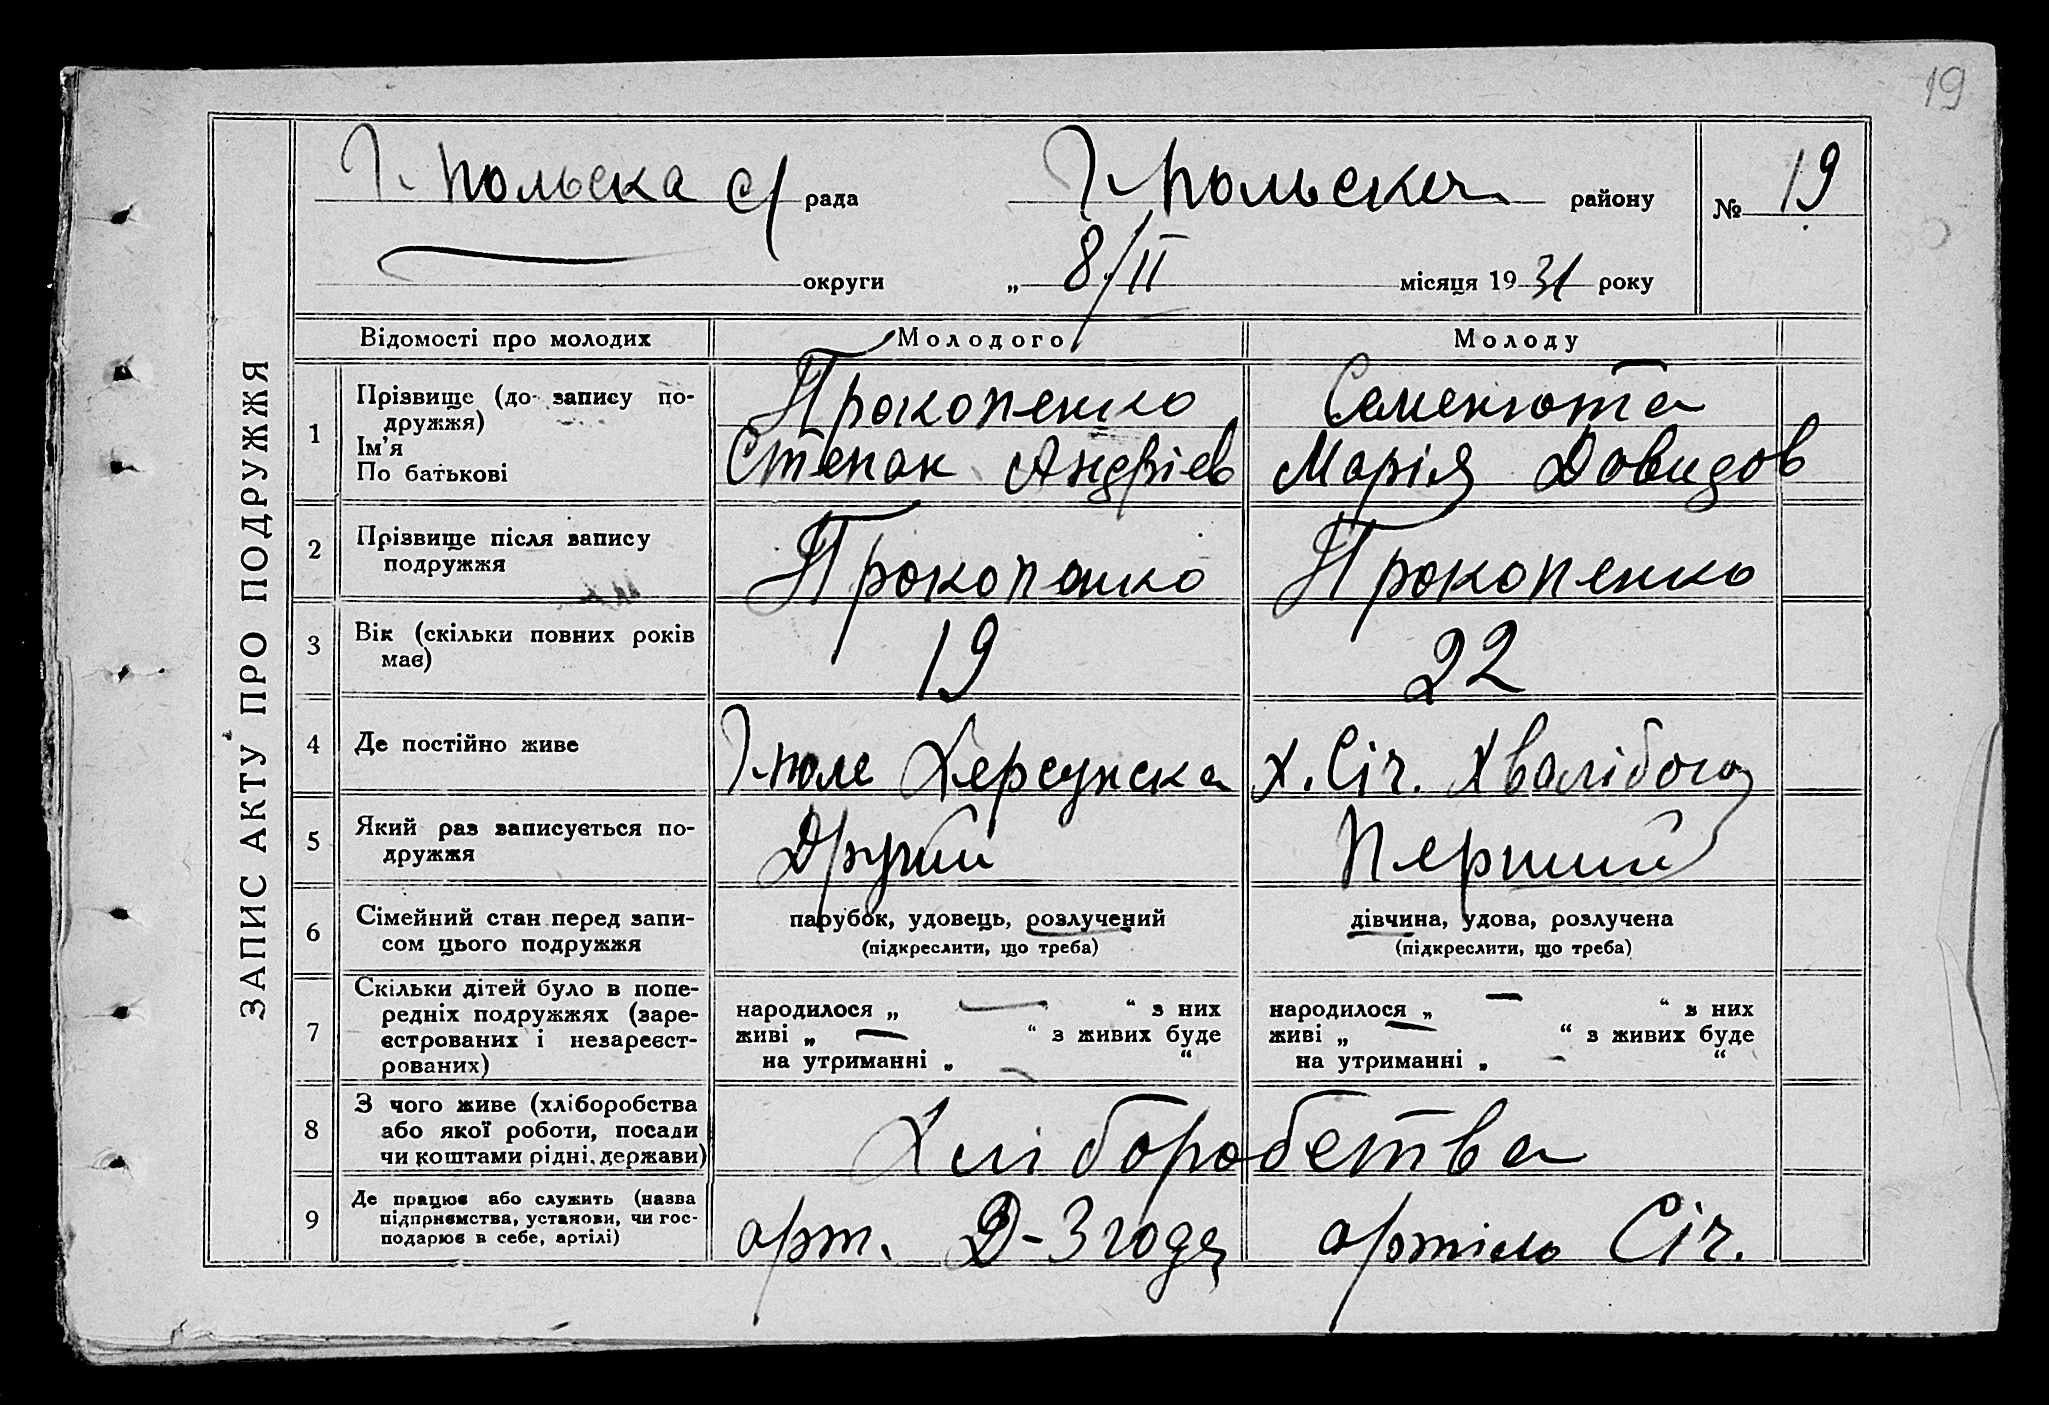 19
ЗАПИС АКТУ ПРО ПОДРУЖЖЯ
Г. Польска с/ рада Г. Польского району № 19
округи „ 8/II місяця 1931 року
Відомості про молодих Молодого Молоду
1 Прізвище (до запису по-
дружжя)
Ім’я
По батькові
Прокопенко
Степан Андріев
Семенюта
Марія Довидов
2 Прізвище після запису
подружжя
Прокопенко Прокопенко
3 Вік (скільки повних років
має)
19 22
4 Де постійно живе Г. поле Херсунска х. Січ. Хвалібога
5 Який раз записується по-
дружжя
Другий Перший
6 Сімейний стан перед запи-
сом цього подружжя
парубок, удовець, розлучений
(підкреслити, що треба)
дівчина, удова, розлучена
(підкреслити, що треба)
7 Скільки дітей було в попе-
редніх подружжях (заре-
єстрованих і незареєст-
рованих)
народилося „ — “ з них
живі „ — “ з живих буде
на утриманні „ — “
народилося „ — “ з них
живі „ — “ з живих буде
на утриманні „ — “
8 З чого живе (хліборобства
або якої роботи, посади
чи коштами рідні, держави)
Хліборобства
9 Де працює або служить (назва
підприємства, установи, чи гос-
подарює в себе, артілі)
арт. Д-3 года артіль Січ.